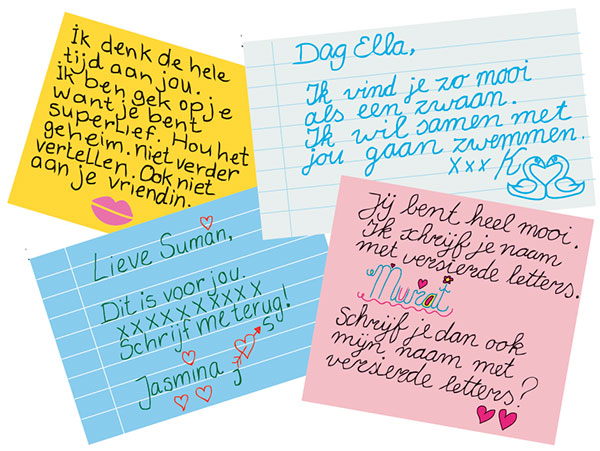 Ik denk de hele
tijd aan jou.
Ik ben gek op je
want je bent
superlief. Hou het
geheim. niet verder
vertellen. Ook niet
aan je vriendin.
Dag Ella,
Ik vind je zo mooi
als een zwaan.
Ik wil samen met
jou gaan zwemmen.
xxx K
Lieve Suman,
Dit is voor jou.
xxxxxxxxxx
Schrijf me terug!
S
Jasmina j
Jij bent heel mooi.
Ik schrijf je naam
met versierde letters.
Murat
Schrijf je dan ook
mijn naam met
versierde letters?